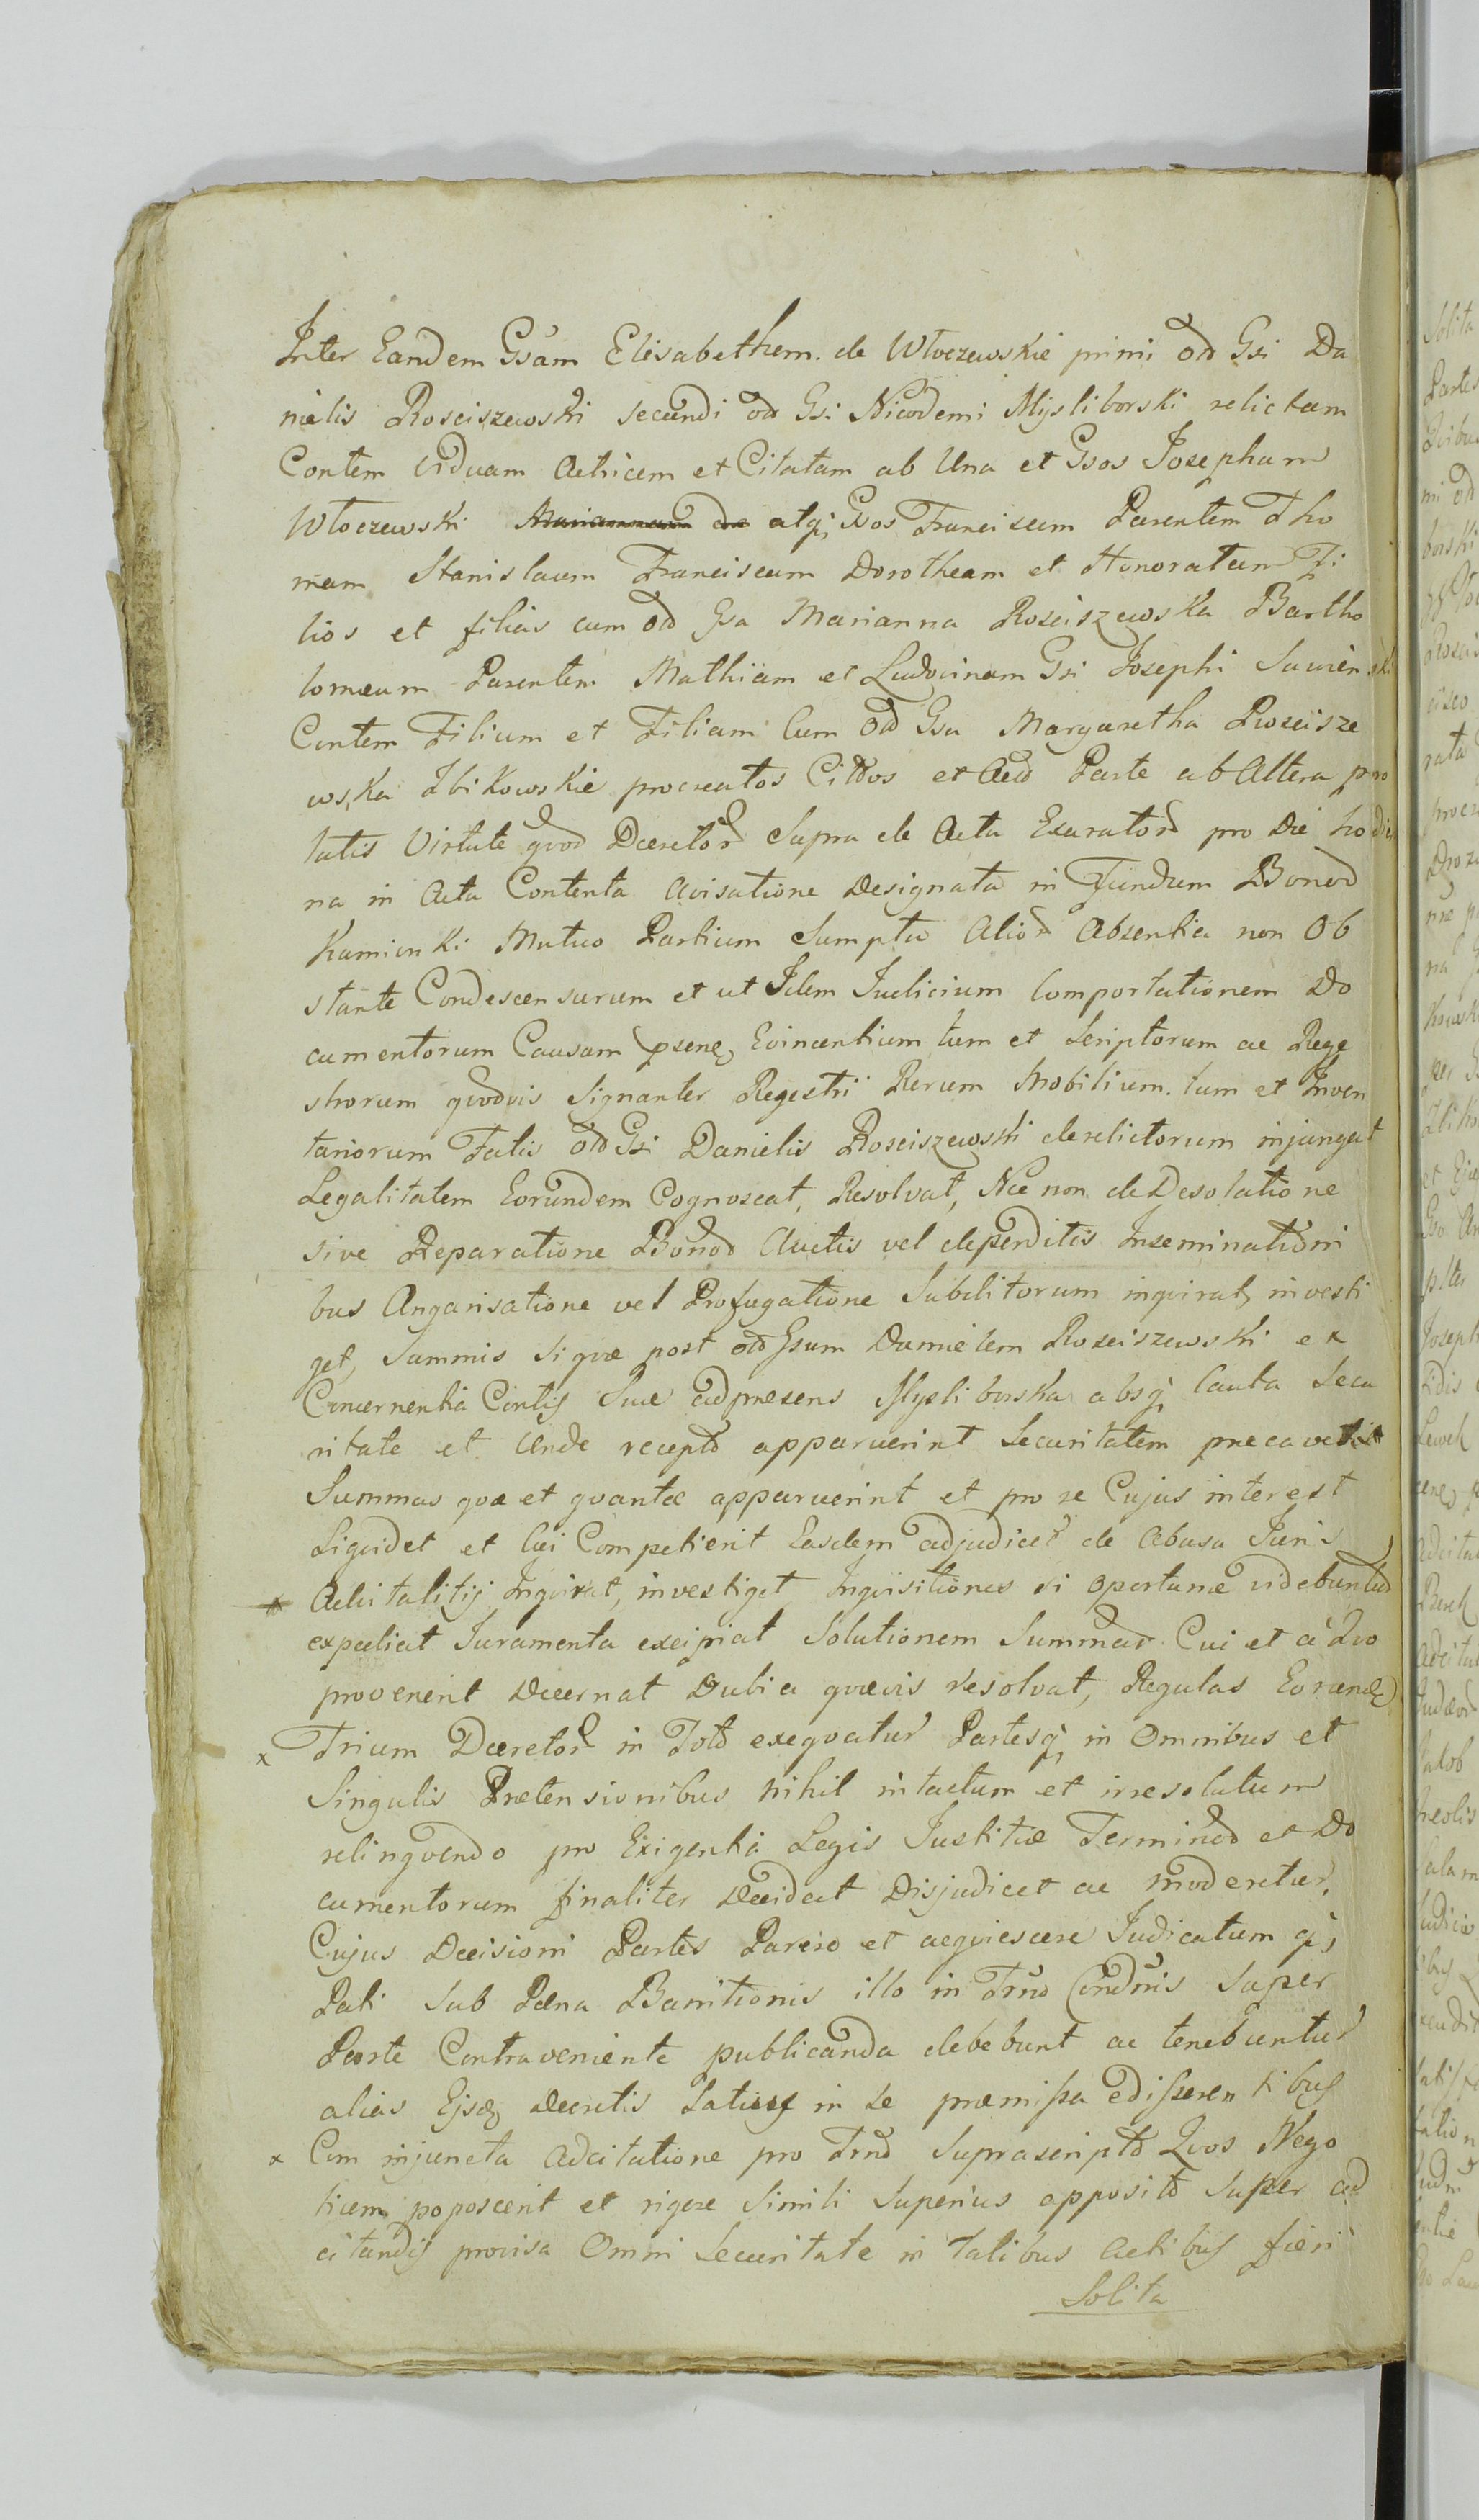 Inter Eandem Gsam Elisabetham de Wtoczewskie primi od Gsi Da
nielis Rosciszewski secundi od Gsi Nicodemi Mysliborski relictam
Contem Viduam Actricem et Citatam ab Una et Gsos Josephum
Wtoczewski Mariannam de atq; Gsos Franciscum Parentem Tho
mam Stanislaum Franciscum Dorotheam et Honoratam Fi
lios et filias cum od Gsa Marianna Rosciszewska Bartho
lomæum Parentem Mathiam et Ludovinam Gsi Josephi
Contem Filium et Filiam Cum od Gsa Margaretha Roscisze
wska Zbikowskie procreatos Cittos et Parte ab Altera pro
latis Virtute qvod Decretor Supra de Acta Exarator pro Die hodi
na in Acta Contenta Avisatione Designata in Fundum Bonor
Kamionki Mutuo Partium Sumptu Alior Absentia non Ob
stante Condescensurum et ut Idem Judicium Comportationem Do
cumentorum Causam Evincentium tum et Scriptorum ac Rege
strorum qvodvis Signanter Regestri Rerum Mobilium tum et Inven
tariorum Fatis od Gsi Danielis Rosciszewski derelictorum injungat
Legalitatem Eorundem Cognoscat, Resolvat, Nec non de Desolatione
sive Reparatione Bonor Auctis vel deperditis Inseminationi
bus Angarisatione vel Profugatione Subditorum inqvirat, investi
get, Summis siqvæ post od Gsum Danielem Rosciszewski ex
Concernentia Contis Suæ adpræsens Mysliborska absq; Cauta Secu
ritate et Unde recepto apparuerint Securitatem præcavet
Summas qvæ et qvantæ apparuerint et pro re Cujus interest
Liqvidet et Cui Competierit Easdem adjudicet de Abusu Juris
Advitalitij Inqvirat, investiget Inqvisitiones si oportunæ videbuntur
expediat Juramenta excipiat Solutionem Summar Cui et à Qvo
provenerit Decernat Dubia qvævis resolvat, Regulas
x Trium Decretor in Toto exeqvatur Partesq; in Omnibus et
Singulis Prætensionibus nihil intactum et irresolutum
relinqvendo pro Exigentia Legis Justitiæ Terminor et Do
cumentorum finaliter Decidat Disjudicet ac moderetur,
Cujus Decisioni Partes Parere et acqviescere Judicatum q;
Pati Sub Pæna Bannitionis illo in Trno Condnis Super
Parte Contraveniente publicanda debebunt ac tenebuntur
alias Ejsdq Decretis Latis in se præmissa edisseren tibus
x Cum injuncta Adcitatione pro Trno Suprascripto Qvos Nego
tium poposcerit et rigore Simili Superius apposito Super ad
citandis provisa Omni Securitate in Talibus Actibus fieri
Solita